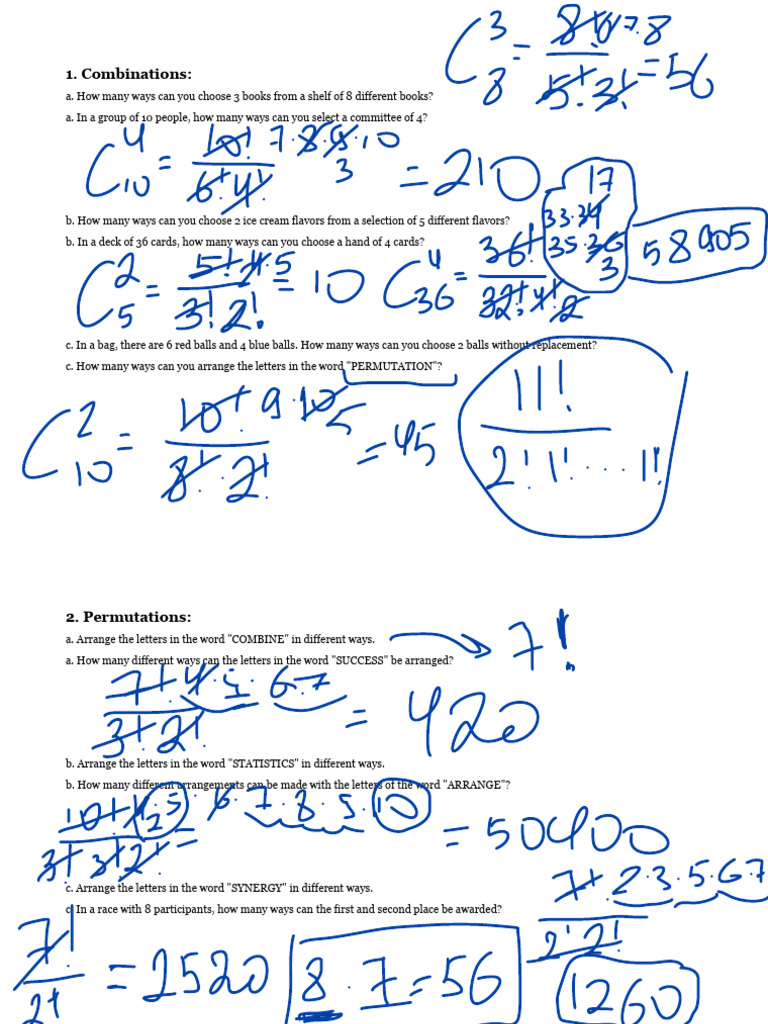 C 3 8 = 8! 6·7·8 / 5! 3! = 56
1. Combinations:
a. How many ways can you choose 3 books from a shelf of 8 different books?
a. In a group of 10 people, how many ways can you select a committee of 4?
C 4 10 = 10! 7·8·9·10 / 6! 4! 3 = 210
b. How many ways can you choose 2 ice cream flavors from a selection of 5 different flavors?
b. In a deck of 36 cards, how many ways can you choose a hand of 4 cards?
C 2 5 = 5! 4·5 / 3! 2! = 10
C 4 36 = 36! 33·34 35·36 / 32! 4! 2 17 3 58905
c. In a bag, there are 6 red balls and 4 blue balls. How many ways can you choose 2 balls without replacement?
c. How many ways can you arrange the letters in the word "PERMUTATION"?
C 2 10 = 10! 9·10 5 / 8! 2! = 45
11! / 2! 1! ... 1!
2. Permutations:
a. Arrange the letters in the word "COMBINE" in different ways.
7!
a. How many different ways can the letters in the word "SUCCESS" be arranged?
7! 4·5·6·7 / 3! 2! = 420
b. Arrange the letters in the word "STATISTICS" in different ways.
b. How many different arrangements can be made with the letters of the word "ARRANGE"?
10! 4·5·6·7·8·9·10 / 3! 3! 2! = 50400
c. Arrange the letters in the word "SYNERGY" in different ways.
c. In a race with 8 participants, how many ways can the first and second place be awarded?
7! 2·3·5·6·7 / 2! 2!
1260
7! / 2! = 2520
8·7=56